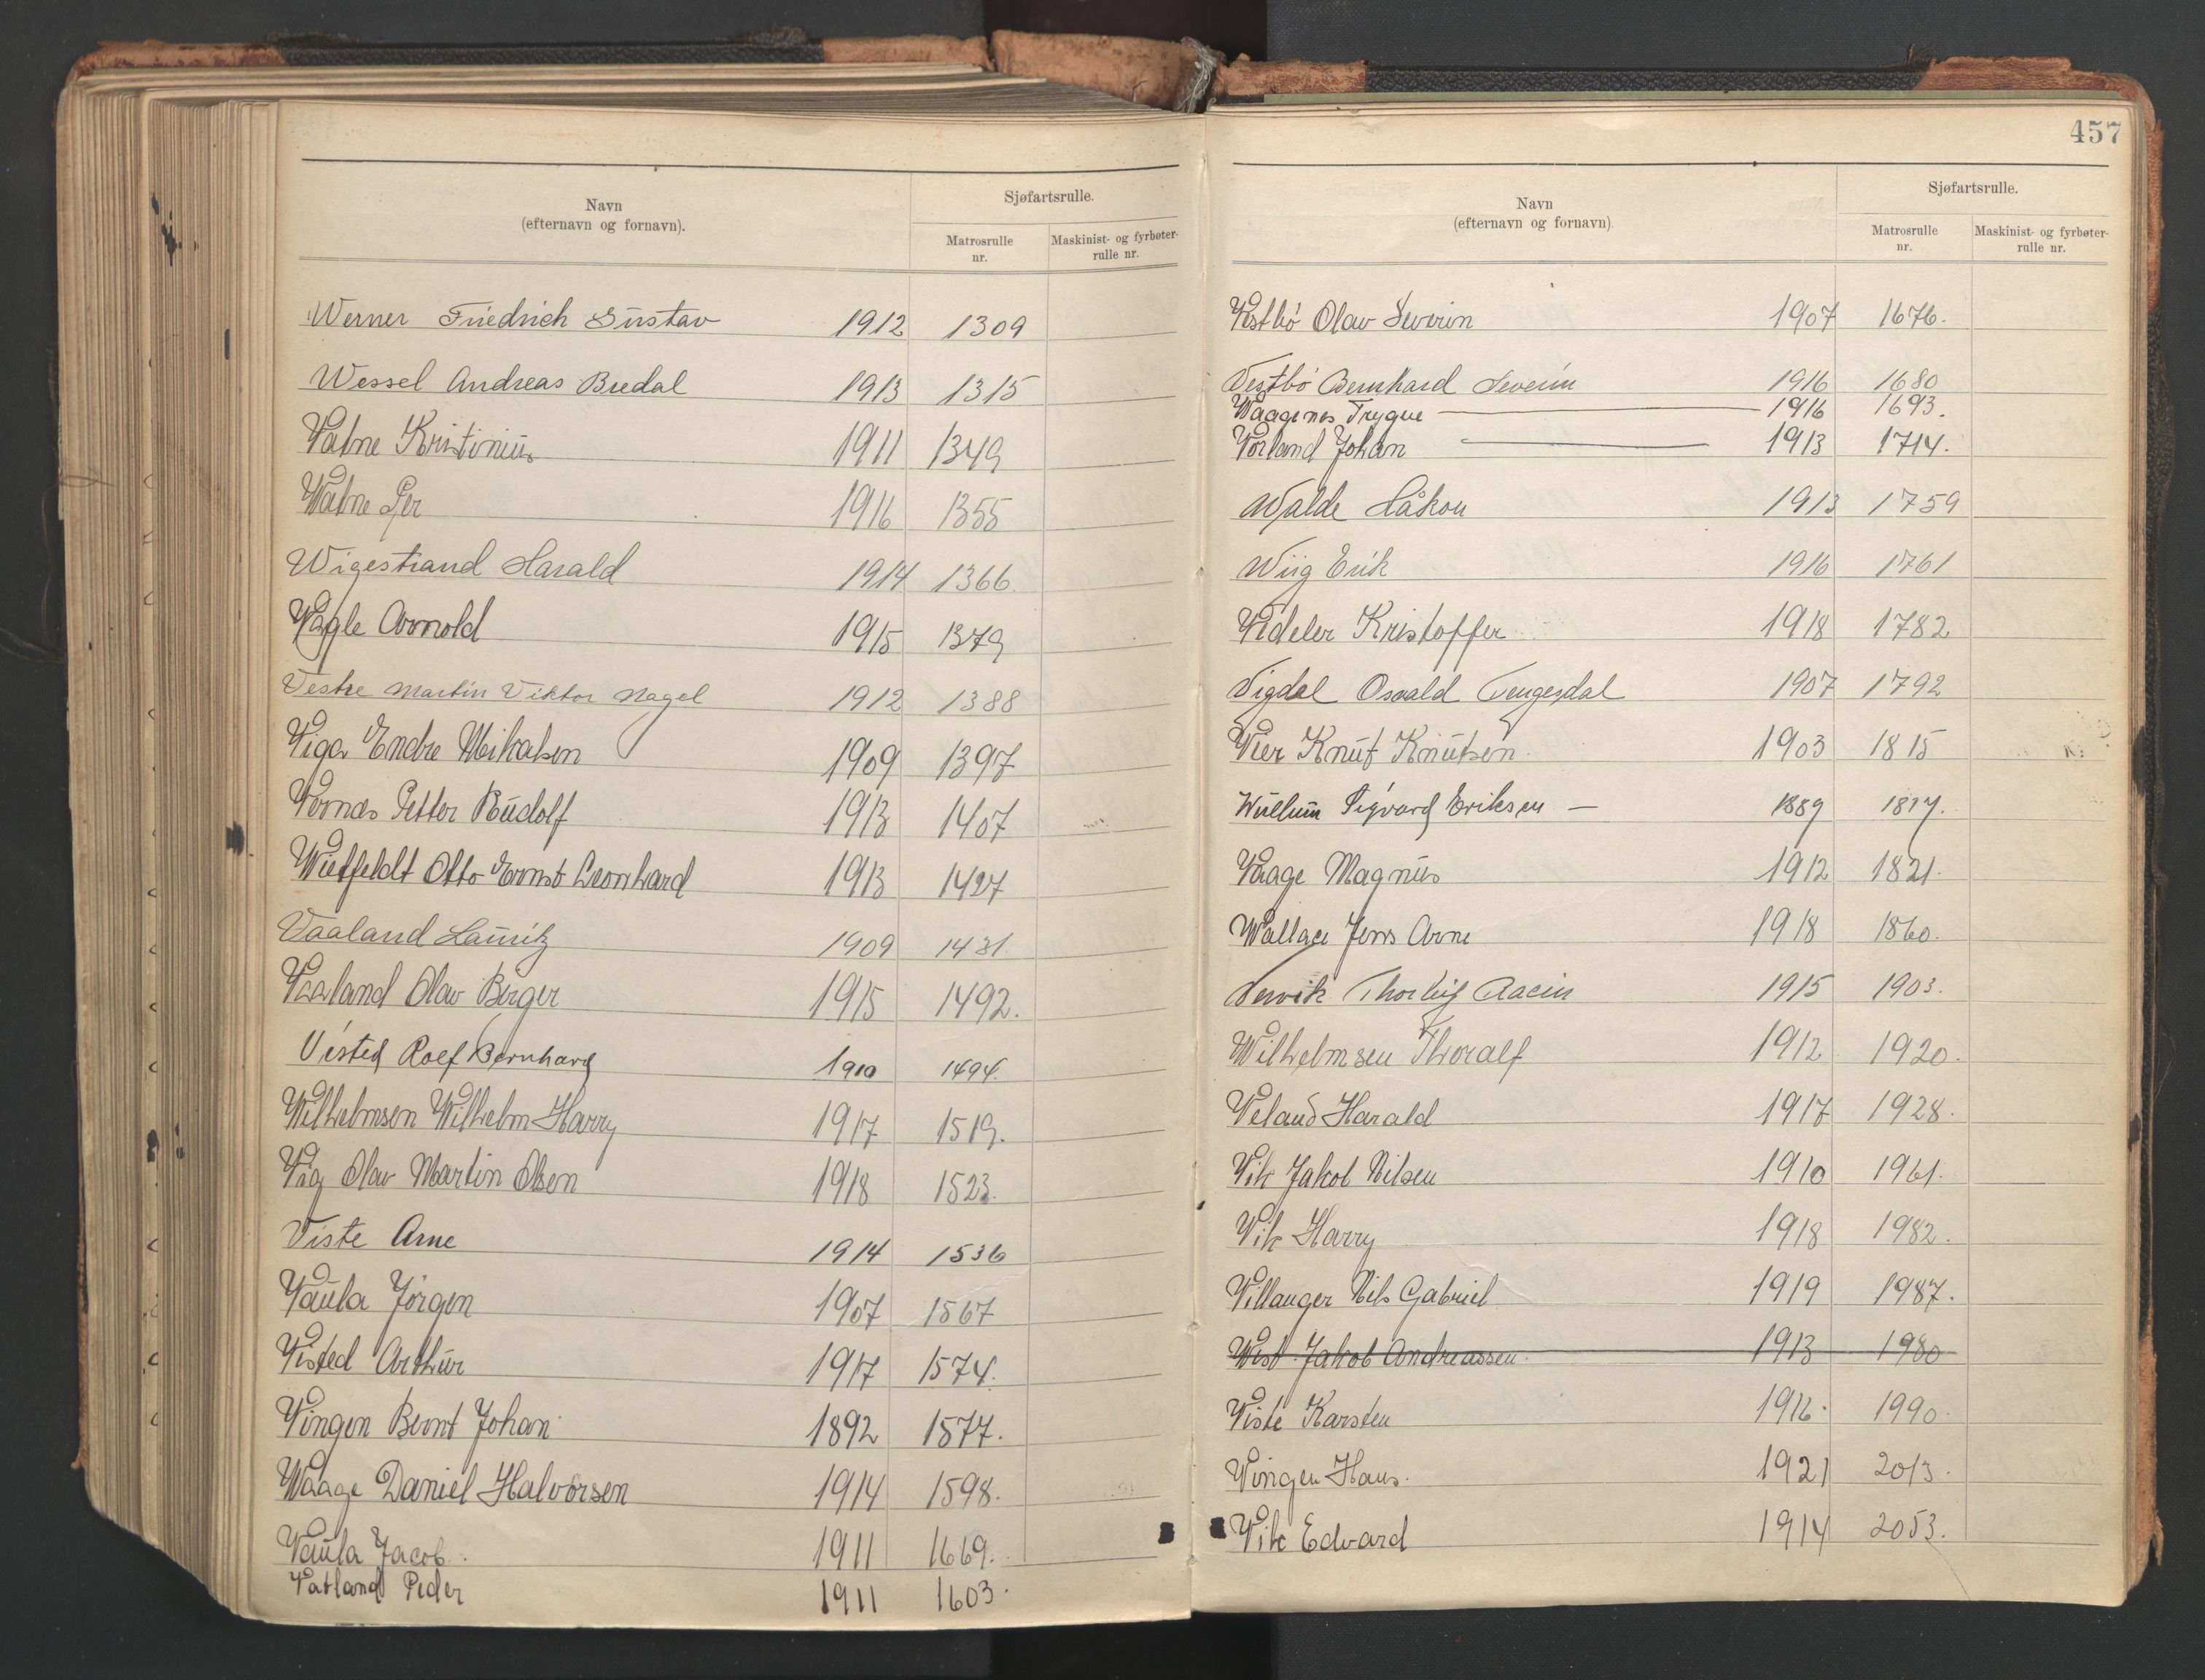 Navn
(efternavn og fornavn).
Sjøfartsrulle.
Matrosrulle nr.
Maskinist- og fyrbøter-rulle nr.
Werner Friedrich Gustav 1912 1309
Wessel Andreas Bredal 1913 1315
Vatne Kristinius 1911 1349
Watne Per 1916 1355
Wigestrand Harald 1914 1366.
Vagle Arnold 1915 1379
Vestre Martin Viktor Nagel 1912 1388
Viga Endre Mikalsen 1909 1397
Vornæs Petter Rudolf 1913 1407
Wietfeldt Otto Ernst Leonhard 1913 1427
Vaaland Lauritz 1909 1431
Vaaland Olav Birger 1915 1492.
Visted Rolf Bernhard 1910 1494.
Wilhelmsen Wilhelm Harry 1917 1519.
Våg Olav Martin Olsen 1918 1523.
Viste Arne 1914 1536
Vaula Jörgen 1907 1567
Visted Arthur 1917 1574.
Vingen Bernt Johan 1892 1577.
Waage Daniel Halvorsen 1914 1598.
Vaula Jacob. 1911 1669.
Vatland Peder 1911 1603.
457
Navn
(efternavn og fornavn)
Sjøfartsrulle.
Matrosrulle nr.
Maskinist- og fyrbøter-rulle nr.
Vestbö Olav Severin 1907 1676.
Vestbö Bernhard Severin 1916 1680
Waagenes Trygve 1916 1693.
Vorland Johan 1913 1714.
Walde Håkon 1913 1759
Wiig Erik 1916 1761
Videler Kristoffer 1918 1782
Vigdal Osvald Tengesdal 1907 1792
Vier Knut Knutsen 1903 1815
Wullum Sigvard Eriksen — 1889 1817.
Vaage Magnus 1912 1821.
Wallace Jens Arne 1918 1860.
Vervik Thorleif 1915 1903.
Wilhelmsen Thoralf 1912 1920.
Veland Harald 1917 1928.
Vik Jakob Nilsen 1910 1961.
Vik Harry 1918 1982.
Villanger Nils Gabriel 1919 1987.
West Jakob Andreassen. 1913 1980
Viste Karsten 1916. 1990.
Vingen Hans. 1921 2013.
Vik Edvard 1914 2053.